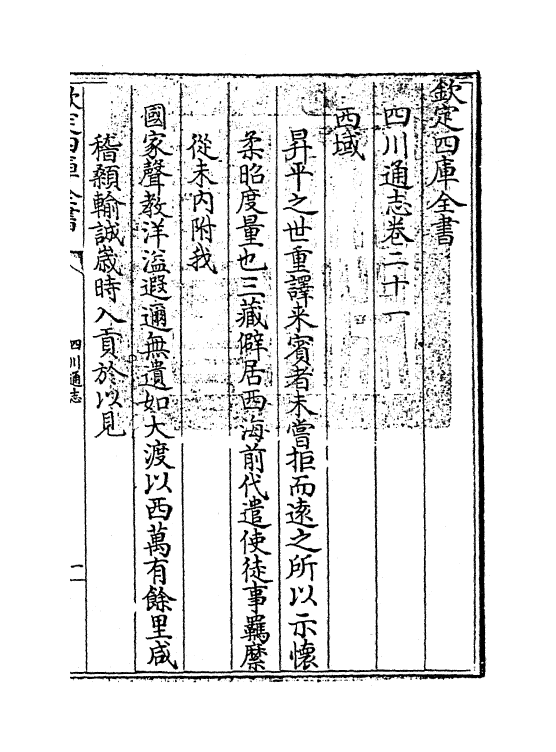 欽定四庫全書
四川通志卷二十一
西域
昇平之世重譯来賓者未嘗拒而逺之所以示懐
柔昭度量也三藏僻居西海前代遣使徒事羈縻
從未内附我
國家聲教洋溢遐邇無遺如大渡以西萬有餘里咸
稽顙輸誠嵗時入貢於以見
欽定四庫全書
四川通志
一